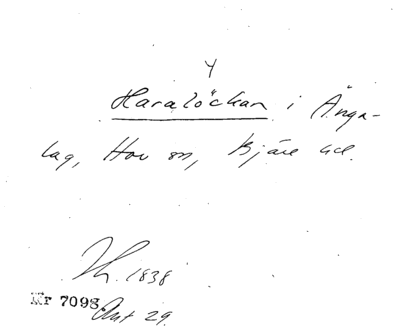 4
Haralöckan i Änga-
lag, Hov sn, Bjäre hd.
Th. 1838
Kr 7098
Ant 29.